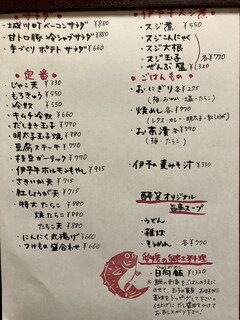 サラダ
・城川町ベーコンサラダ ¥880
・甘トロ豚 冷シャブサラダ ¥880
・手づくりポテトサラダ ¥660
定番
・じゃこ天 ¥330
・もろきゅう ¥550
・冷奴 ¥550
・キムチ冷奴 ¥660
・だしまき玉子 ¥770
・明太子玉子焼 ¥880
・豆腐ステーキ ¥770
・枝豆ガーリック ¥770
・伊予牛ホルモンやし ¥935
・さきいか天 ¥715
・紅しょうが天 ¥715
・特大たらこ ¥880
焼たらこ ¥880
たらこ天 ¥880
・にんにく丸揚げ ¥660
・つけもの盛合わせ ¥660
伊予牛スジ煮
・スジ煮 ¥550
・スジこんにゃく
・スジ大根
・スジ玉子 各¥770
・ぜんぶ盛 ¥1,320
ごはんもの
・おにぎり 各¥275
(梅・おかか・塩・たらこ)
・焼めし 各¥770
・お茶漬 各¥770
(梅・のり・たらこ)
・伊予の麦みそ汁 ¥330
酔笑オリジナル
旨辛スープ
・うどん
・雑炊
・そうめん 各¥770
愛媛の郷土料理
・日向飯 ¥1,320